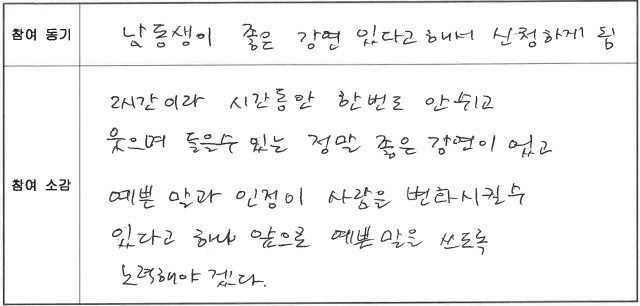 참여 동기
남동생이 좋은 강연 있다고 해서 신청하게 됨
참여 소감
2시간이라 시간동안 한번도 안쉬고
웃으며 들을수 있는 정말 좋은 강연이 었고
예쁜 말과 인정이 사람을 변화시킬수
있다고 하니 앞으로 예쁜 말을 쓰도록
노력해야 겠다.